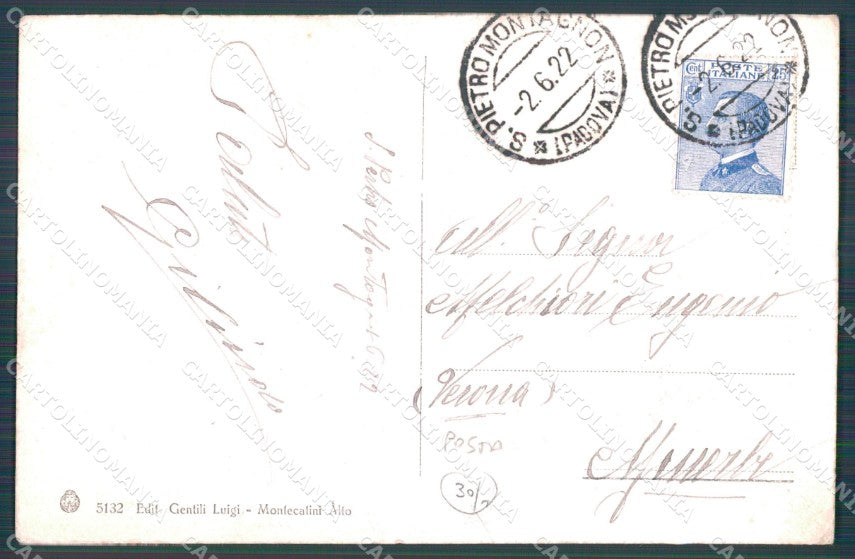 S. PIETRO MONTAGNON
-2.6.22
(PADOVA)
S. PIETRO MONTAGNON
-2.6.22
(PADOVA)
POSTE ITALIANE
Cent 25
Saluti
S. Pietro Montagnon
All. Signor
Melchiori Eugenio
(Verona)
POSTA
30/
5132 Edit. Gentili Luigi - Montecatini Alto
CARTOLINOMANIA